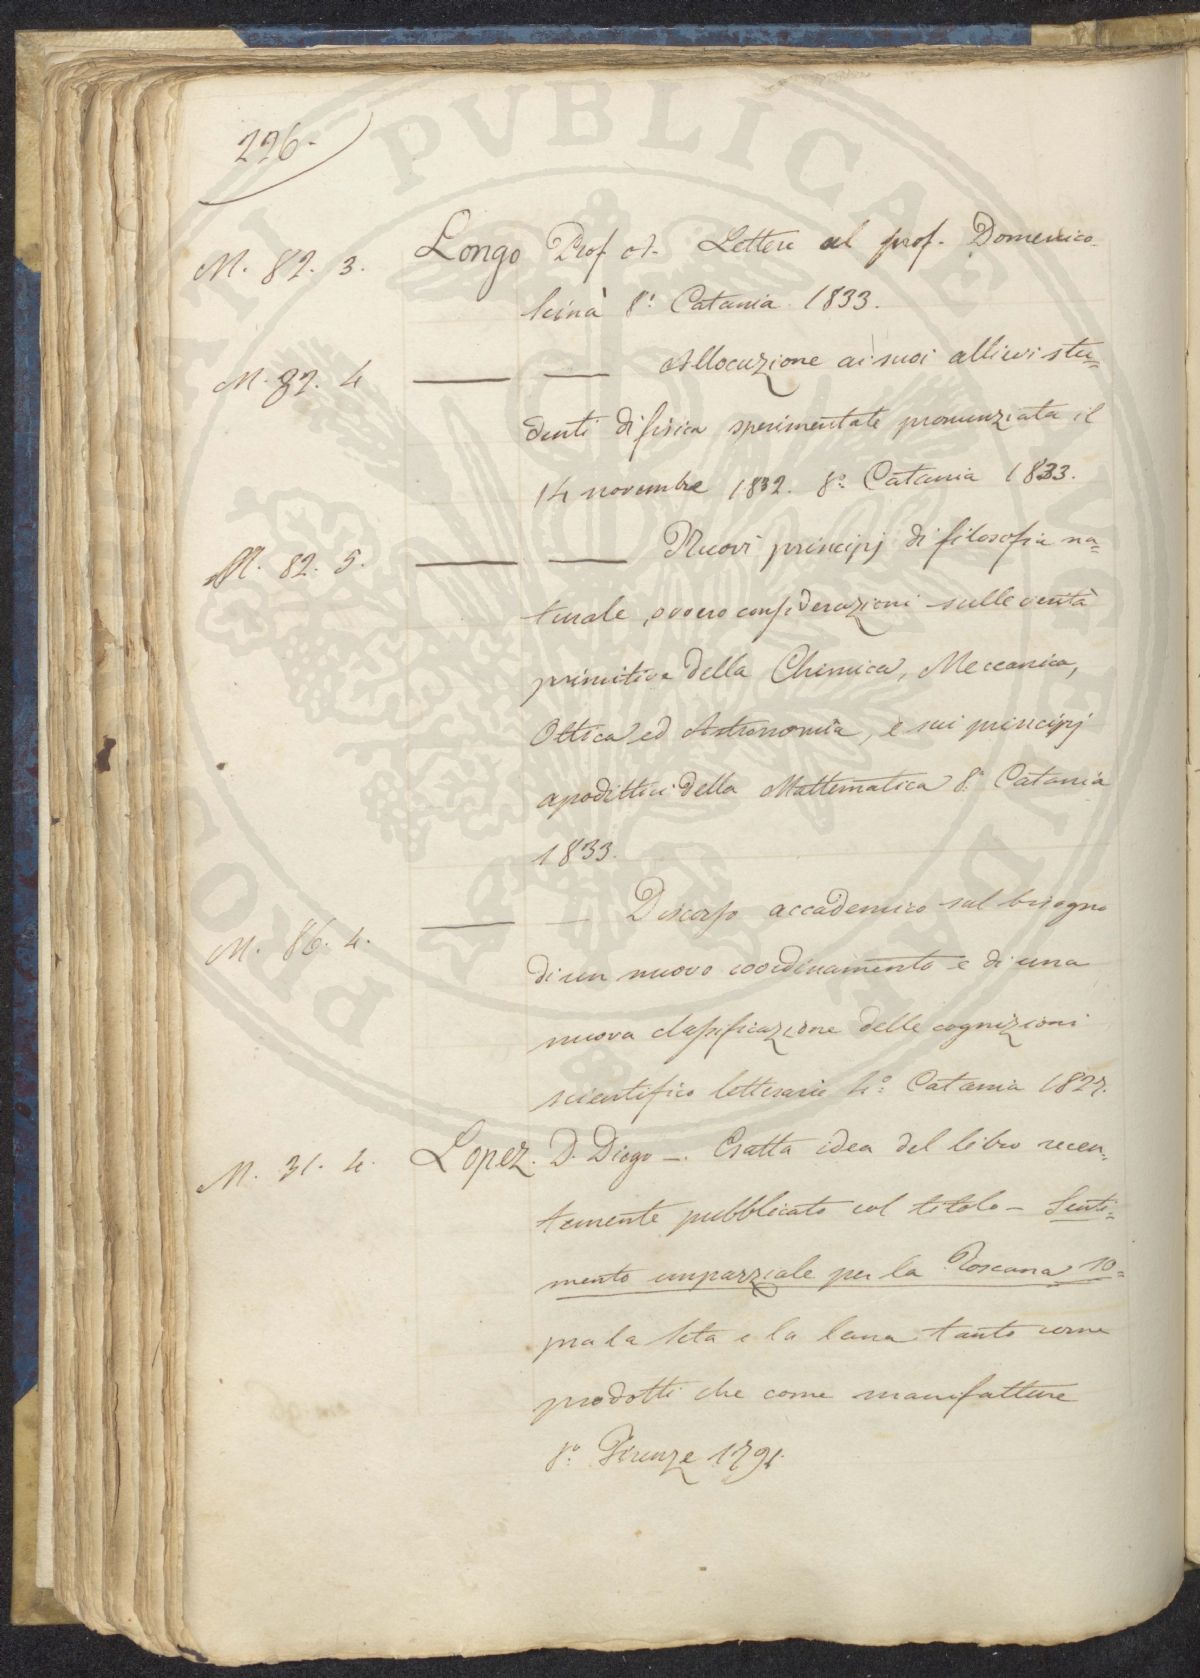 226.
M. 82. 3. Longo Prof. A. Lettere al prof. Domenico
Scinà 8.° Catania 1833.
M. 82. 4 Allocuzione ai suoi allievi stu=
denti di fisica sperimentale pronunziata il
14 novembre 1832. 8.° Catania 1833.
M. 82. 5. Nuovi principj di filosofia na=
turale, ovvero considerazioni sulle verità
primitive della Chimica, Meccanica,
Ottica ed Astronomia, e sui principj
apodittici della Mattematica 8.° Catania
1833.
M. 86. 4. Discorso accademico sul bisogno
di un nuovo coordinamento e di una
nuova classificazione delle cognizioni
scientifico letterarie 4.° Catania 1827.
M. 31. 4. Lopez. D. Diego —. Esatta idea del libro recen=
temente pubblicato col titolo — Senti=
mento imparziale per la Toscana so=
pra la seta e la lana tanto come
prodotti che come manifatture
8.° Firenze 1791.
PROBATI PVBLICAE